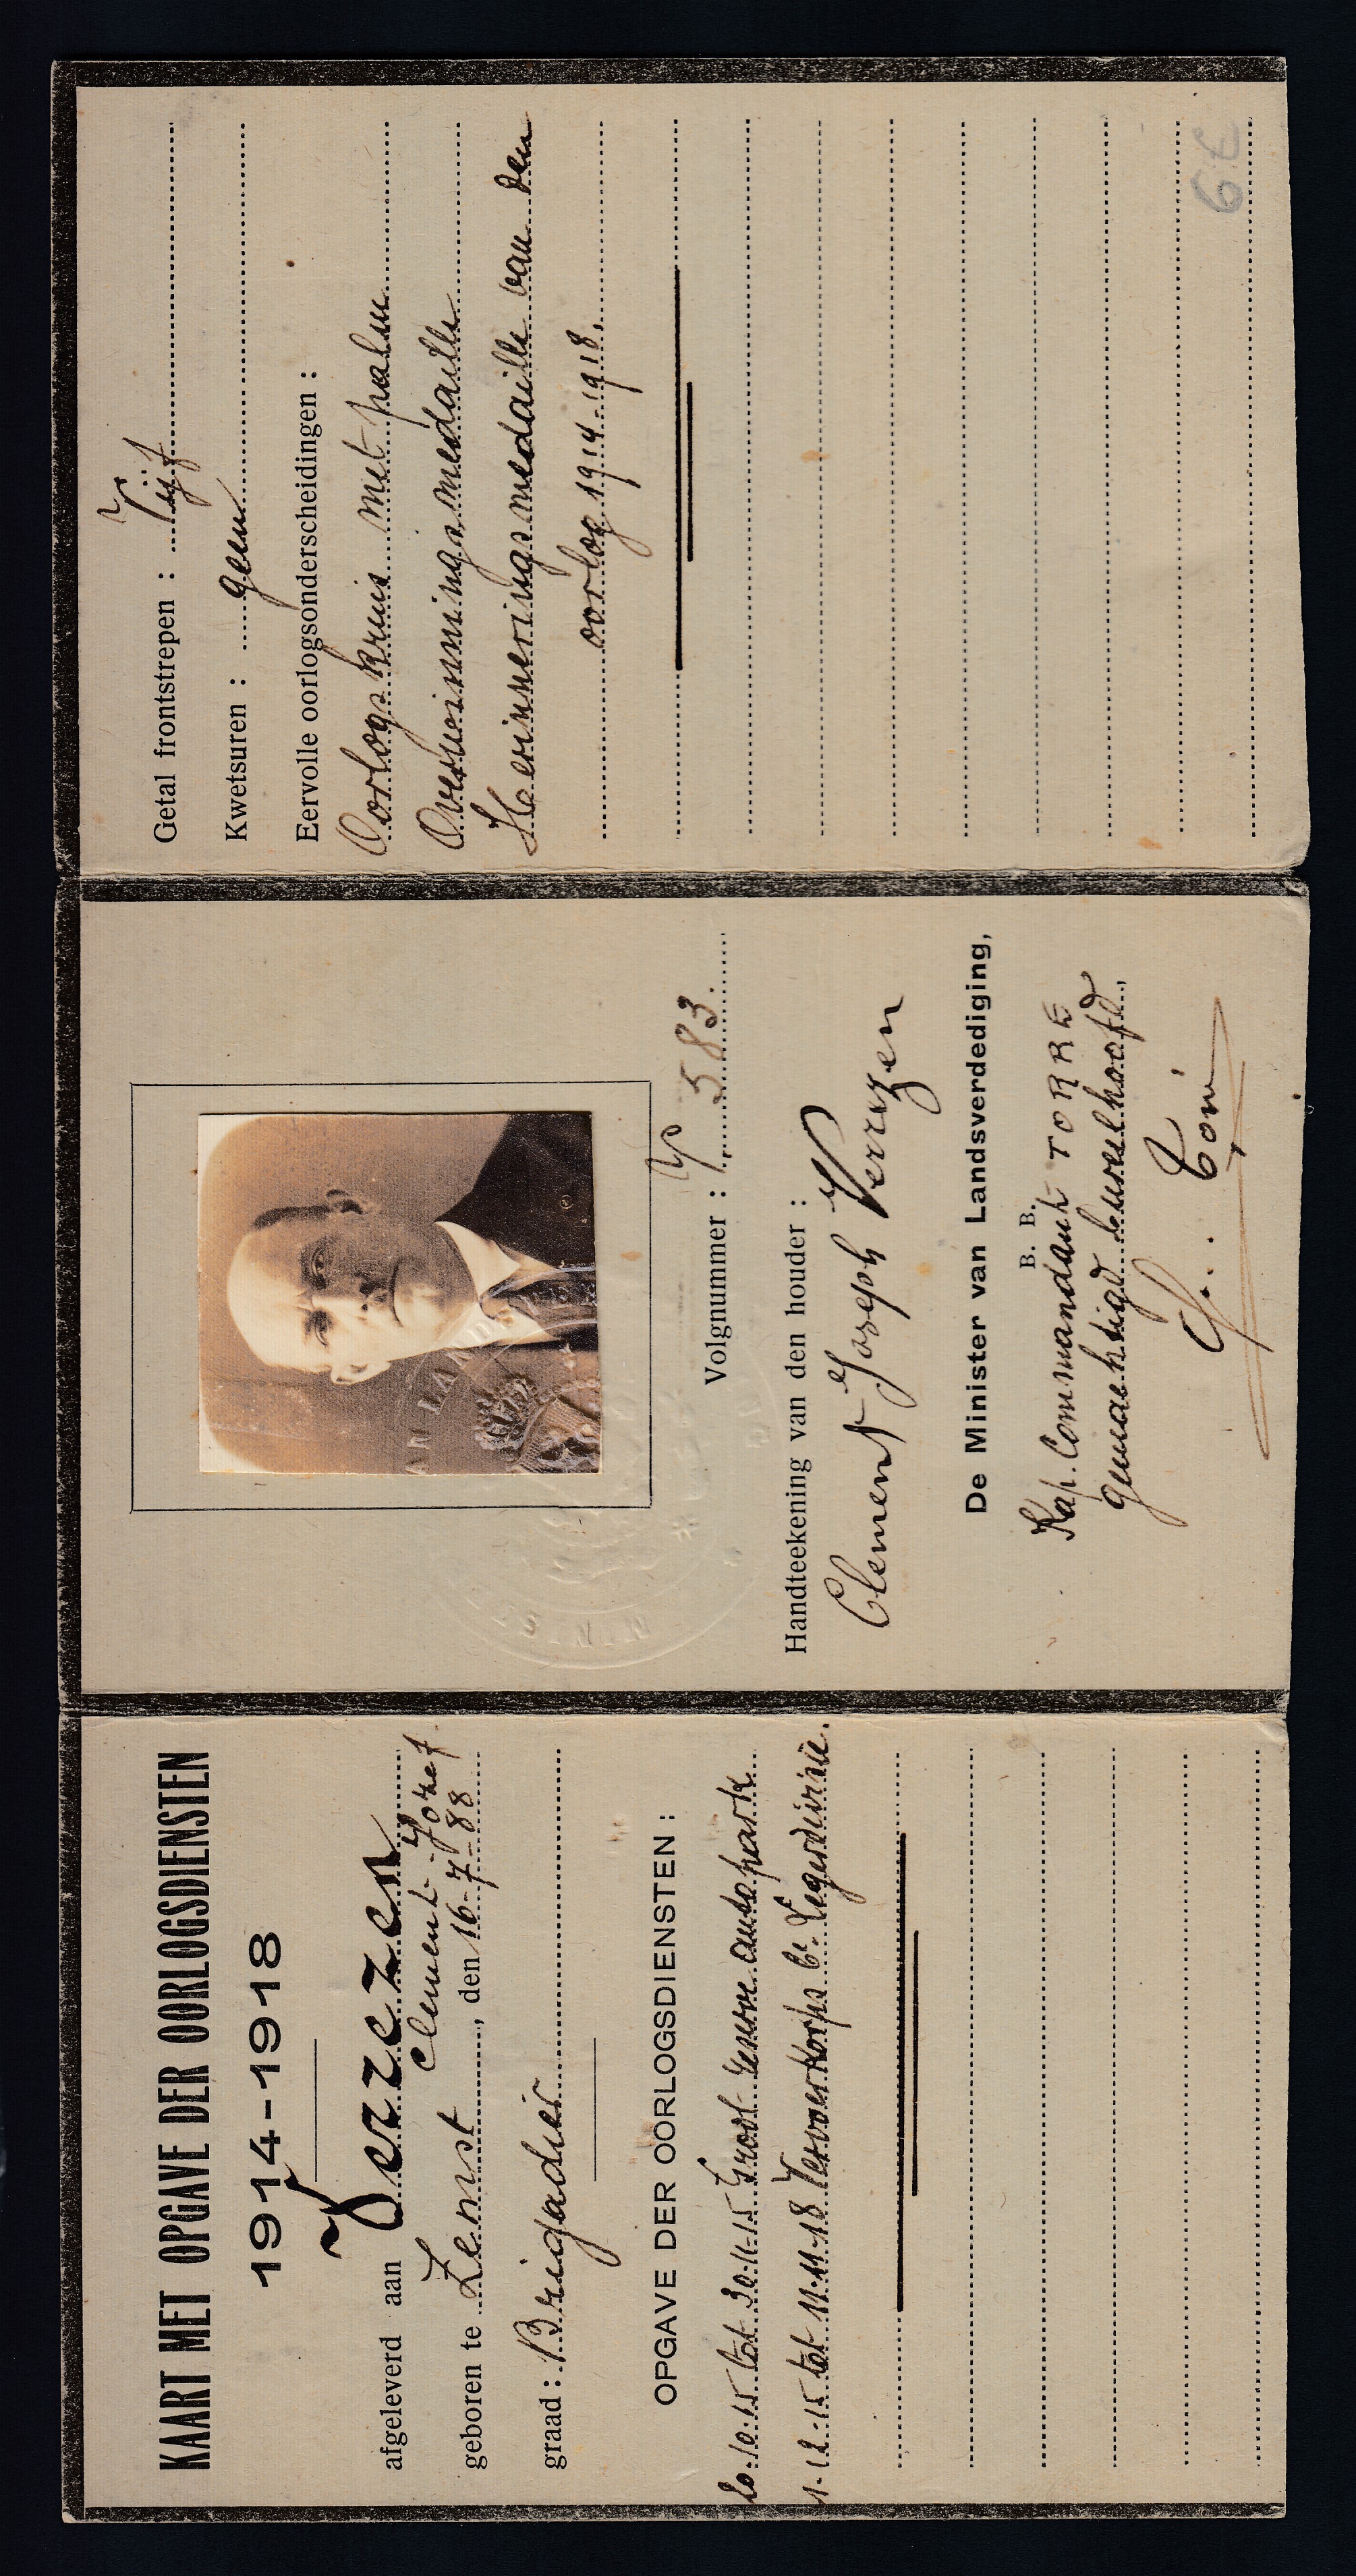 KAART MET OPGAVE DER OORLOGSDIENSTEN
1914-1918
afgeleverd aan Verrezen
Clement-Jozef
geboren te Zemst, den 16-7-88
graad : Brigadier
OPGAVE DER OORLOGSDIENSTEN :
20.10.15 tot 30.11.15 Groot reserve autopark
1.12.15 tot 11.11.18 Vervoerkorps 6e Legerdivisie.
Volgnummer : V 583.
Handteekening van den houder :
Clement Joseph Verrezen
De Minister van Landsverdediging,
B. B.
Kap. Commandant TORRE
gemachtigd bureelhoofd,
MINIS
AN LAND
Getal frontstrepen : Vijf
Kwetsuren : geen
Eervolle oorlogsonderscheidingen :
Oorlogskruis met palm
Overwinningsmedaille
Herinneringsmedaille van den
oorlog 1914-1918.